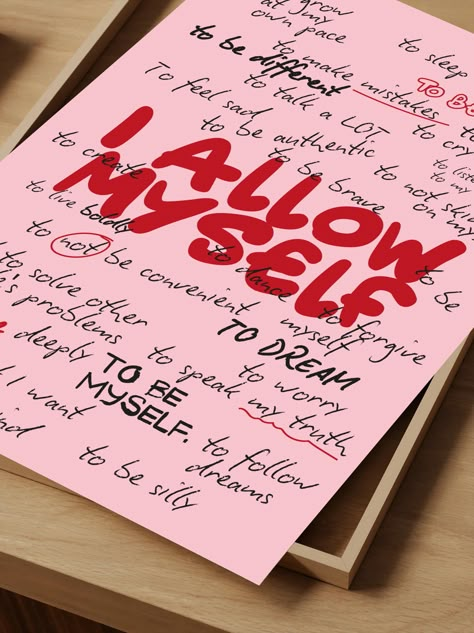 grow
at my
own pace
to be different
to make mistakes
to sleep
TO
To feel sad
to talk a LOT
to cry
to be authentic
to create
I ALLOW
MYSELF
to be brave
to not
on my
to live boldly
to dance
to be
to (not) be convenient
myself
to forgive
to solve other
problems
TO DREAM
deeply
to speak my truth
to worry
TO BE
MYSELF.
I want
to follow
dreams
to be silly